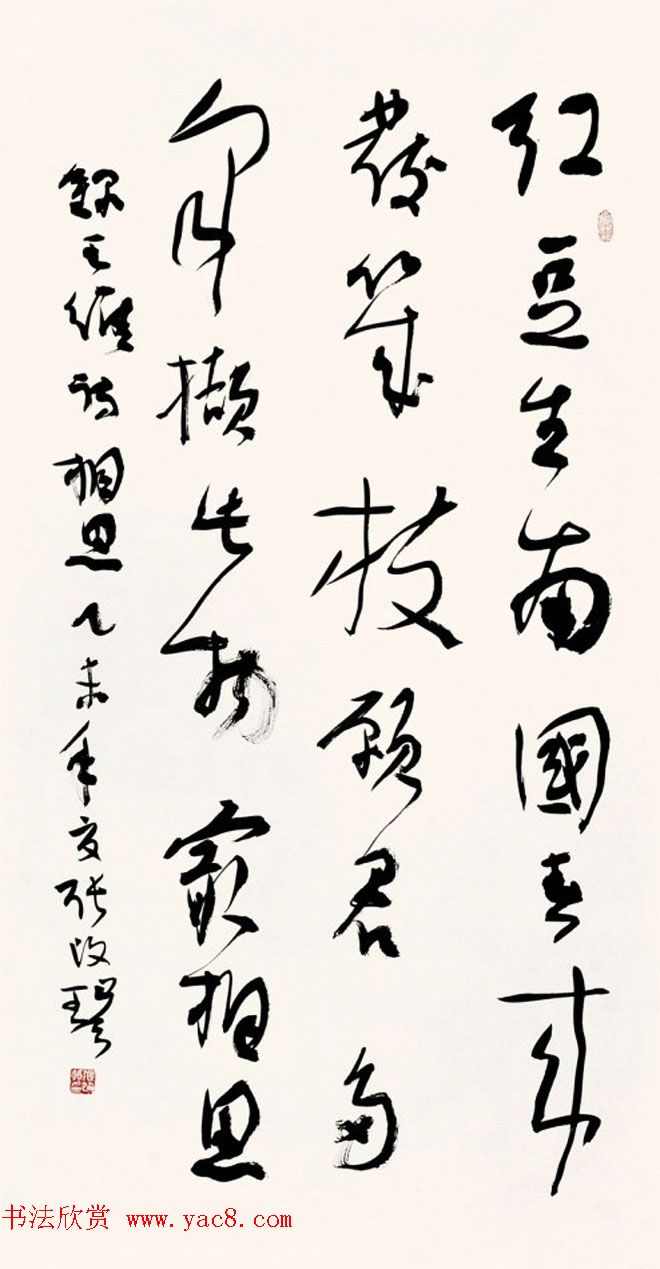 红豆生南國春来
發幾枝願君多
采擷此物最相思
録王維詩相思乙未年夏张改琴
书法欣赏 www.yac8.com